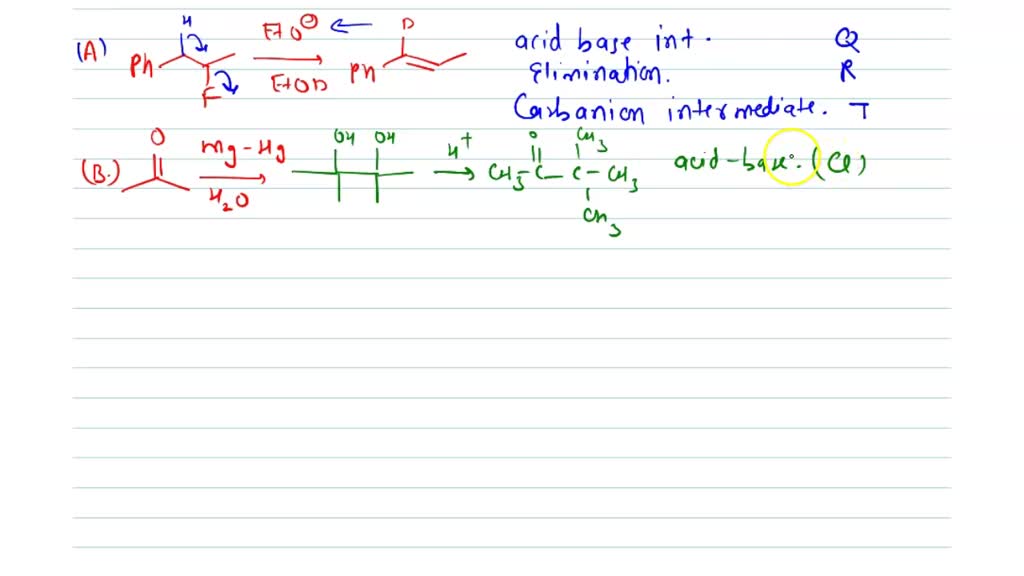 (A) Ph H F EtO⊖ EtOD Ph D acid base int. Q
Elimination. R
Carbanion intermediate. T
(B.) O Mg-Hg H2O OH OH H+ CH3-C-C-CH3 O CH3 CH3 acid-base. (Q)